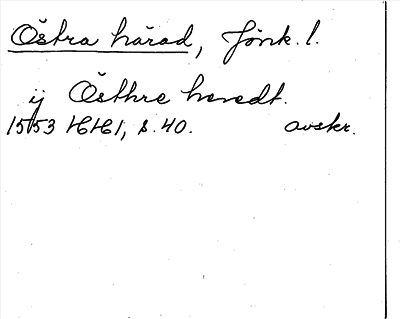 Östra härad, Jönk. l.
ij Östhre heredt.
1553 HH 1, s. 40. avskr.